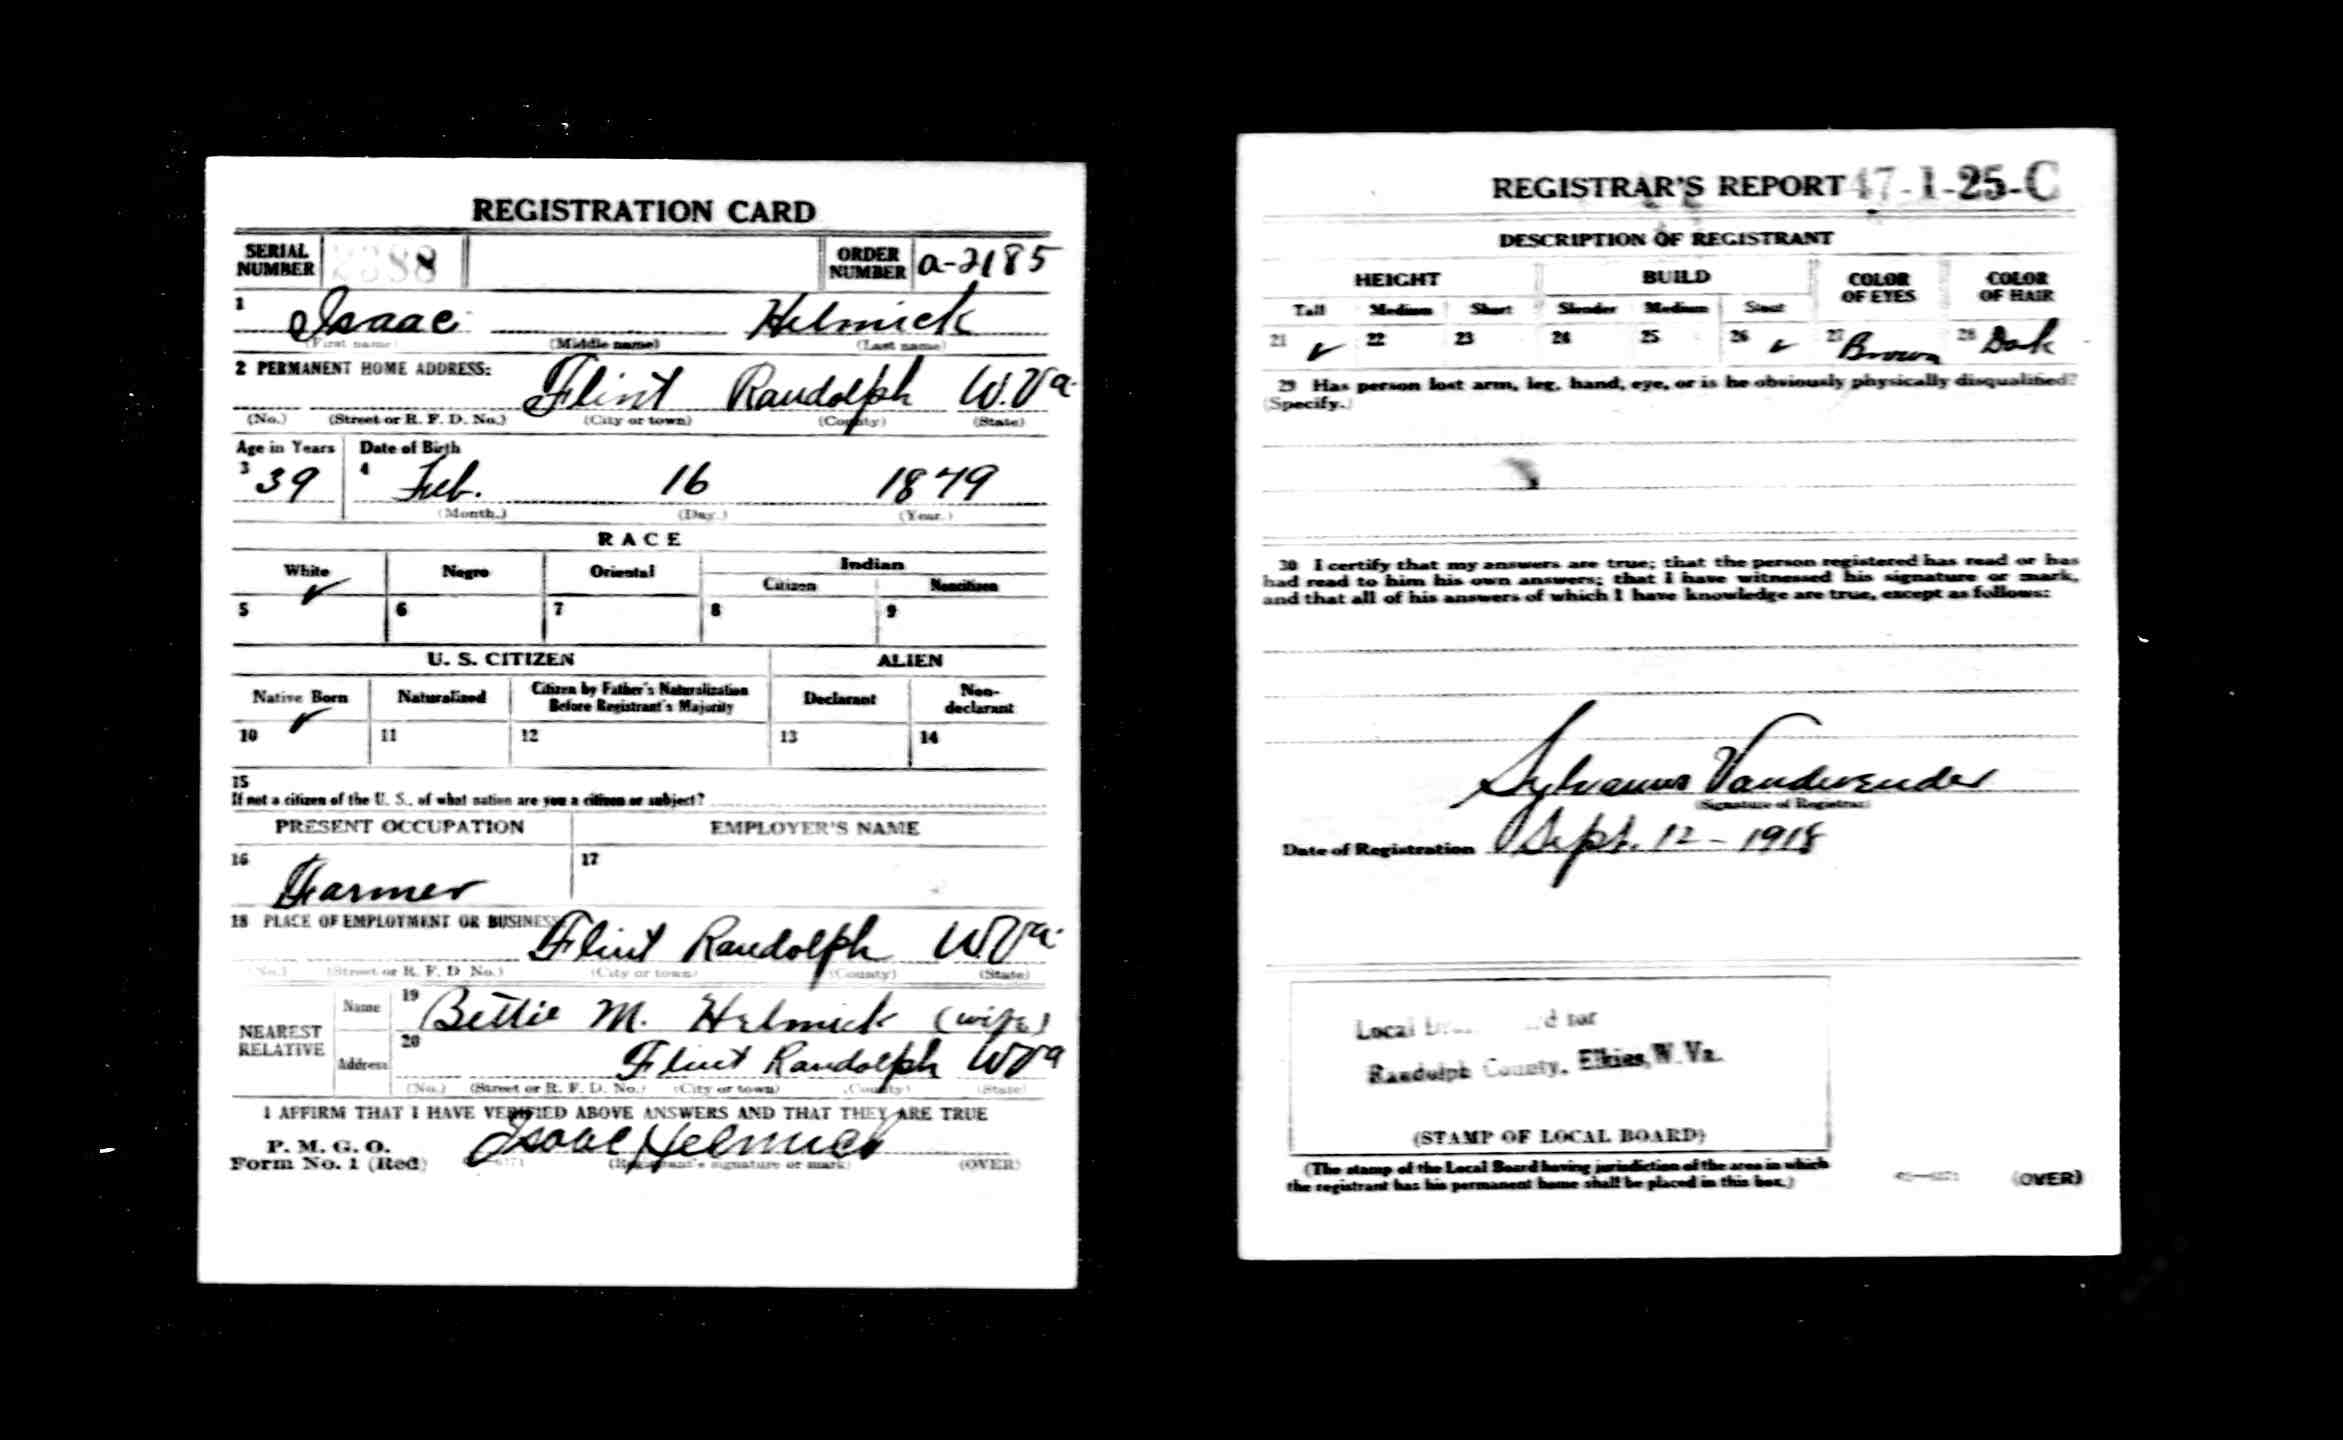 REGISTRATION CARD
SERIAL NUMBER 2388 ORDER NUMBER a-2185
1 Isaac Helmick
(First name) (Middle name) (Last name)
2 PERMANENT HOME ADDRESS:
Flint Randolph W.Va.
(No.) (Street or R. F. D. No.) (City or town) (County) (State)
Age in Years Date of Birth
3 39 4 Feb. 16 1879
(Month.) (Day.) (Year.)
RACE
White Negro Oriental Indian
Citizen Noncitizen
5 ✓ 6 7 8 9
U. S. CITIZEN ALIEN
Native Born Naturalized Citizen by Father's Naturalization Before Registrant's Majority Declarant Non-declarant
10 ✓ 11 12 13 14
15
If not a citizen of the U. S., of what nation are you a citizen or subject?
PRESENT OCCUPATION EMPLOYER'S NAME
16 Farmer 17
18 PLACE OF EMPLOYMENT OR BUSINESS
Flint Randolph W.Va.
(No.) (Street or R. F. D. No.) (City or town) (County) (State)
NEAREST RELATIVE
Name 19 Bettie M. Helmick (wife)
Address 20 Flint Randolph W Va
(No.) (Street or R. F. D. No.) (City or town) (County) (State)
I AFFIRM THAT I HAVE VERIFIED ABOVE ANSWERS AND THAT THEY ARE TRUE
P. M. G. O.
Form No. 1 (Red) Isaac Helmick
(Registrant's signature or mark) (OVER)
REGISTRAR'S REPORT 47-1-25-C
DESCRIPTION OF REGISTRANT
HEIGHT BUILD COLOR OF EYES COLOR OF HAIR
Tall Medium Short Slender Medium Stout
21 ✓ 22 23 24 25 26 ✓ 27 Brown 28 Dark
29 Has person lost arm, leg, hand, eye, or is he obviously physically disqualified?
(Specify.)
30 I certify that my answers are true; that the person registered has read or has
had read to him his own answers; that I have witnessed his signature or mark,
and that all of his answers of which I have knowledge are true, except as follows:
Sylvanus Vandevender
(Signature of Registrar)
Date of Registration Sept. 12 - 1918
Local Board for
Randolph County, Elkins, W. Va.
(STAMP OF LOCAL BOARD)
(The stamp of the Local Board having jurisdiction of the area in which
the registrant has his permanent home shall be placed in this box.)
(OVER)